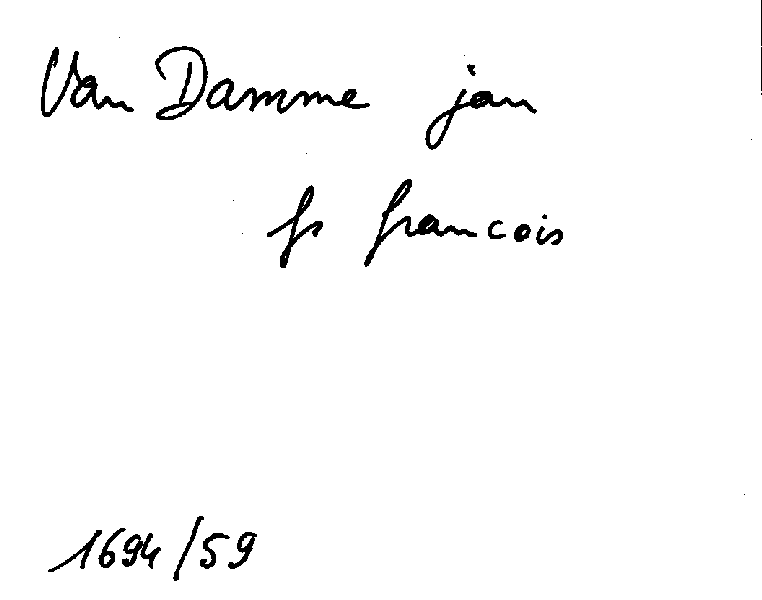 Van Damme jan
fs francois
1694/59